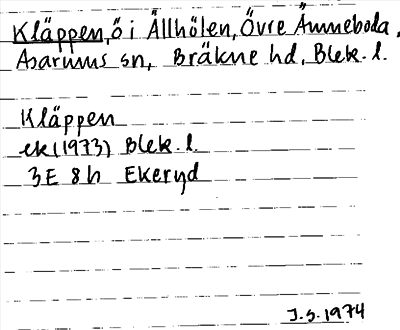 Kläppen, ö i Ällhölen, Övre Ämmeboda,
Asarums sn, Bräkne hd, Blek. l.
Kläppen
ek (1973) Blek. l.
3E 8h Ekeryd
J.S. 1974